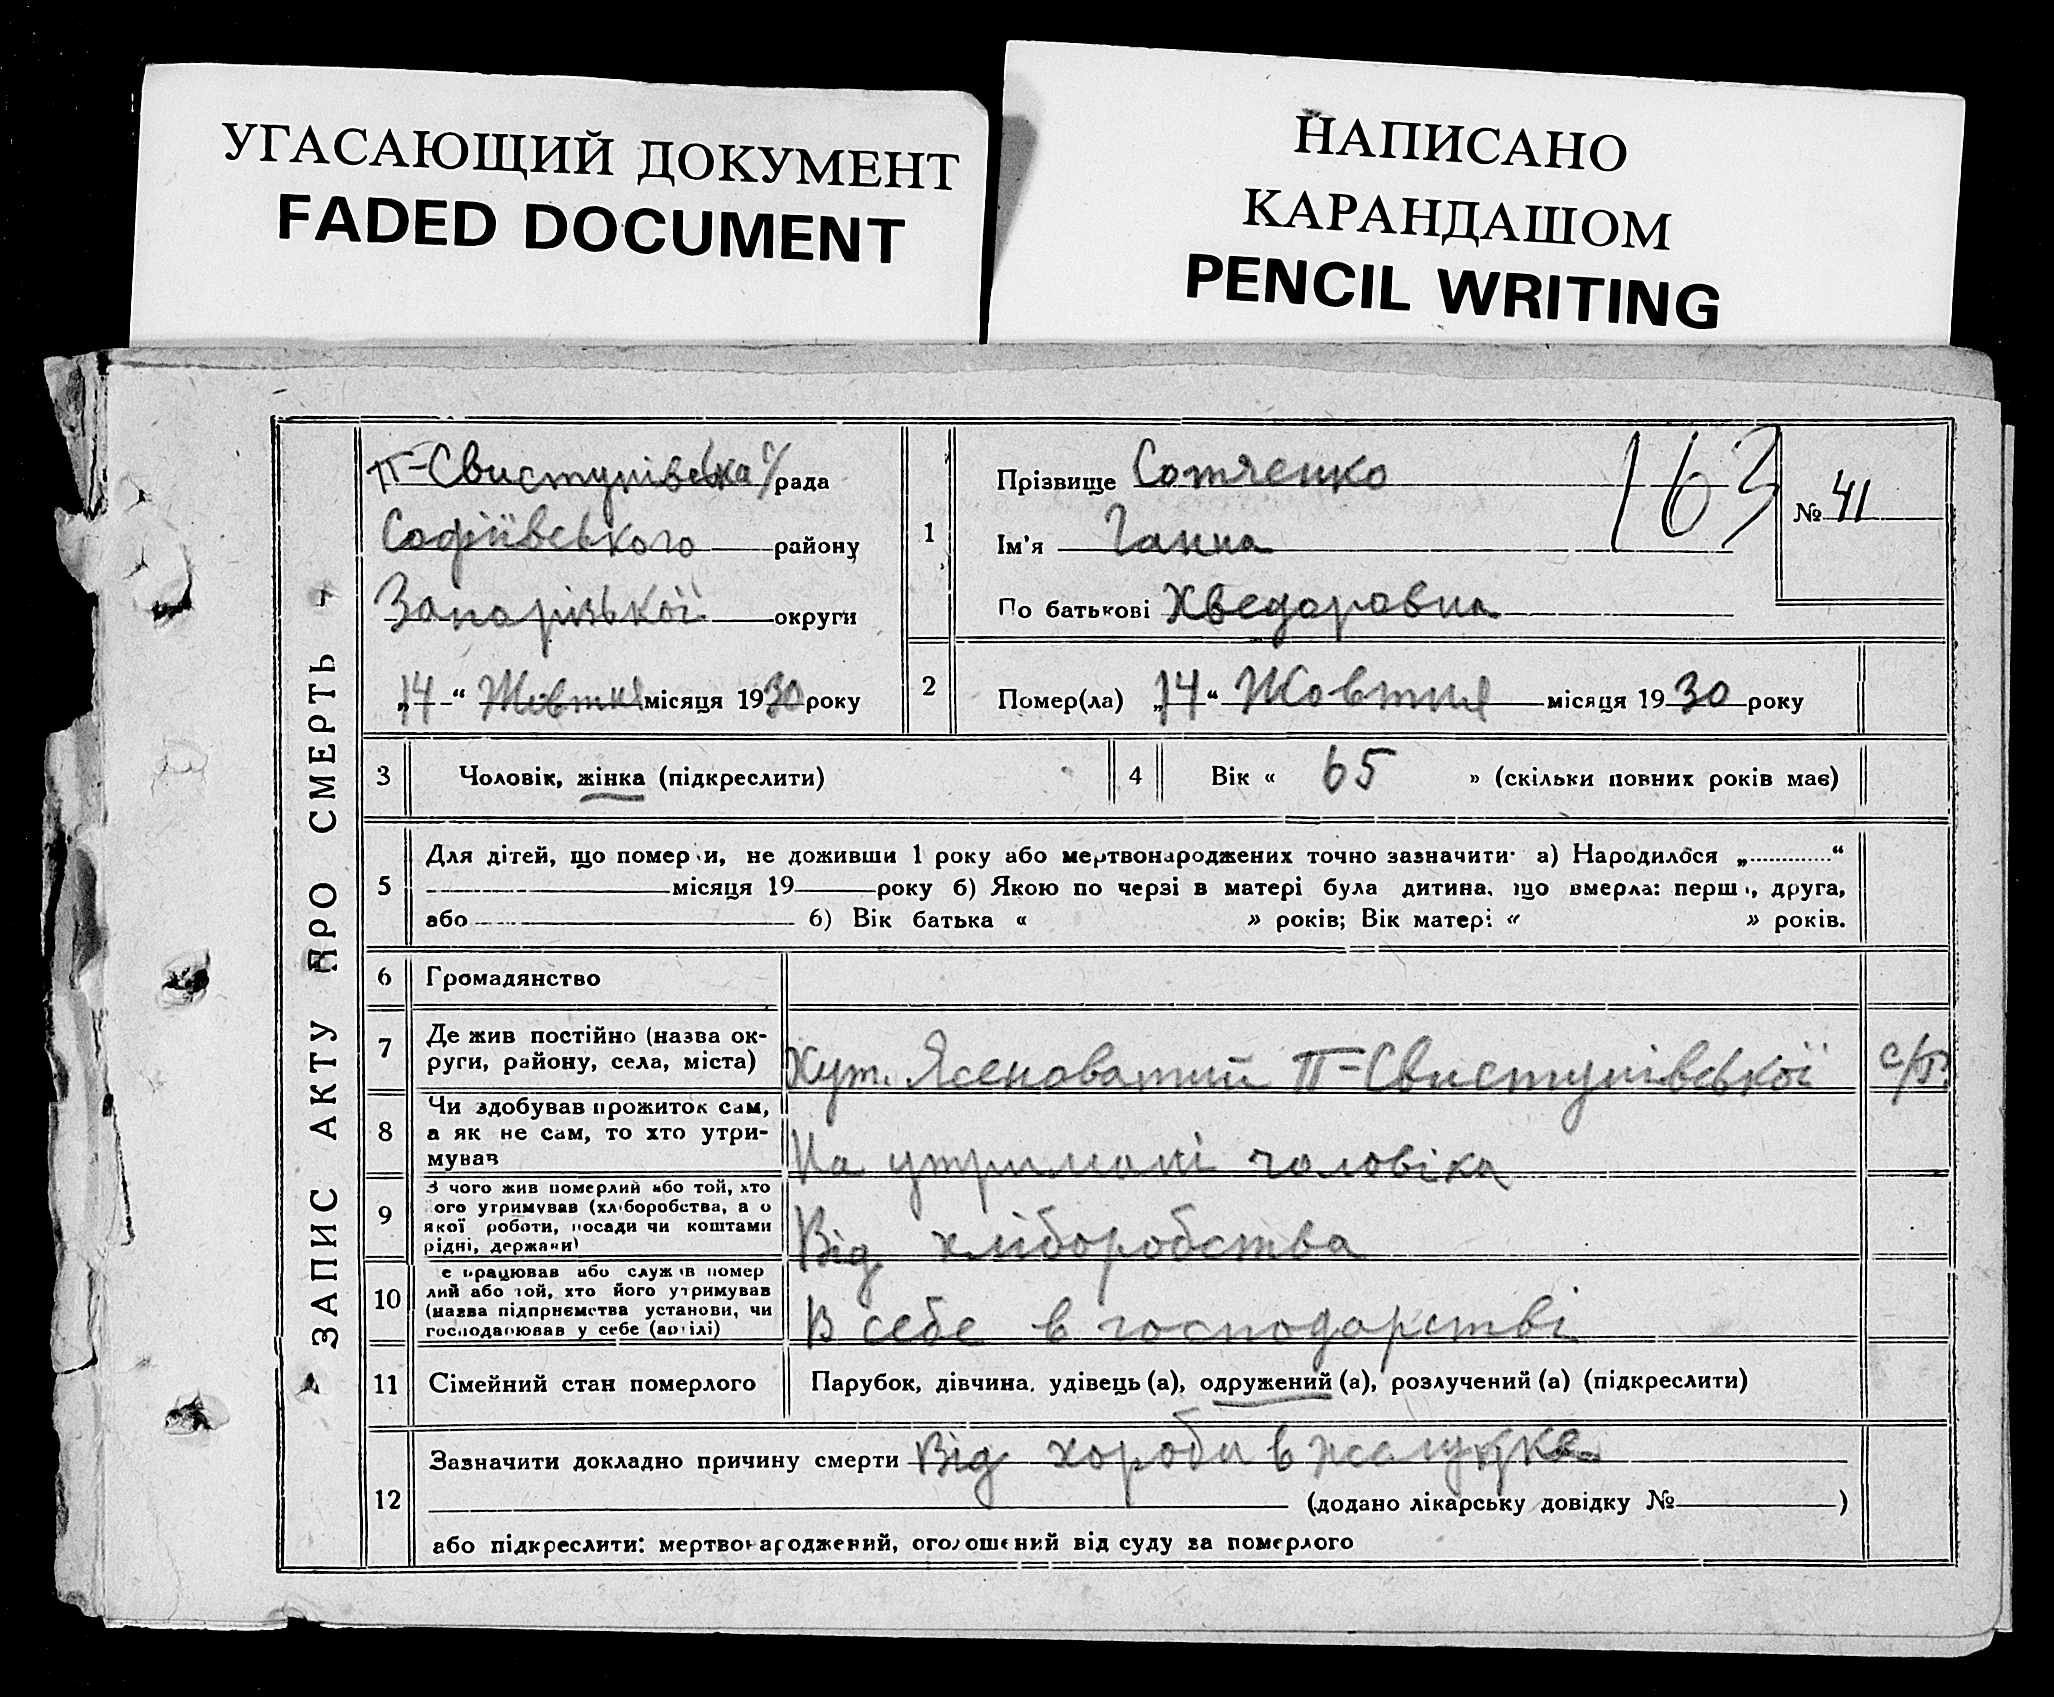 УГАСАЮЩИЙ ДОКУМЕНТ
FADED DOCUMENT
НАПИСАНО
КАРАНДАШОМ
PENCIL WRITING
ЗАПИС АКТУ ПРО СМЕРТЬ
П-Свистунівська с/рада
Софіївського району
Запорізької округи
„14“ Жовтня місяця 1930 року
1
Прізвище Сотченко
Ім'я Ганна
По батькові Хведоровна
163
№ 41
2
Помер(ла) „14“ Жовтня місяця 1930 року
3 Чоловік, жінка (підкреслити)
4 Вік « 65 » (скільки повних років має)
5
Для дітей, що померли, не доживши 1 року або мертвонароджених точно зазначити: а) Народилося „ “
місяця 19 року б) Якою по черзі в матері була дитина, що вмерла: перша, друга,
або б) Вік батька « » років; Вік матері « » років.
6 Громадянство
7
Де жив постійно (назва ок-
руги, району, села, міста)
Хут. Ясеноватий П-Свистунівської с/р.
8
Чи здобував прожиток сам,
а як не сам, то хто утри-
мував
На утримані чоловіка
9
З чого жив померлий або той, хто
його утримував (хліборобства, а о
якої роботи, посади чи коштами
рідні, держави)
Від хліборобства
10
Де працював або служив помер
лий або той, хто його утримував
(назва підприємства установи, чи
господарював у себе (артілі)
В себе в господарстві
11 Сімейний стан померлого
Парубок, дівчина, удівець (а), одружений (а), розлучений (а) (підкреслити)
12
Зазначити докладно причину смерти Від хороби в желудке
(додано лікарську довідку № )
або підкреслити: мертвонароджений, оголошений від суду за померлого